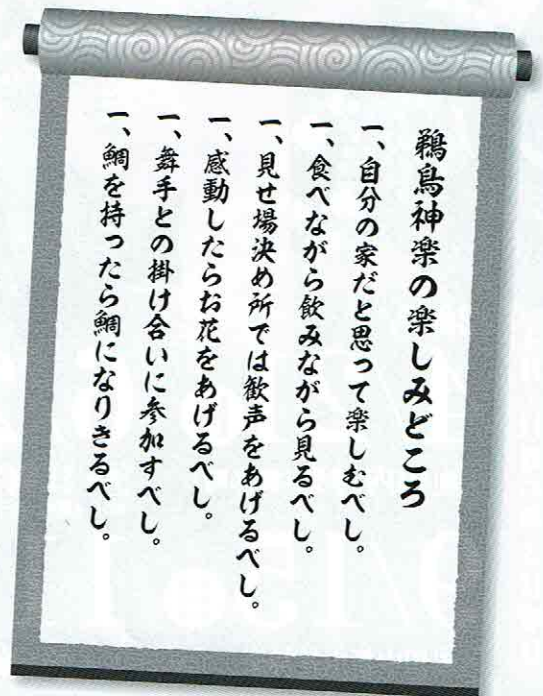 鵜鳥神楽の楽しみどころ
一、自分の家だと思って楽しむべし。
一、食べながら飲みながら見るべし。
一、見せ場決め所では歓声をあげるべし。
一、感動したらお花をあげるべし。
一、舞手との掛け合いに参加すべし。
一、鯛を持ったら鯛になりきるべし。